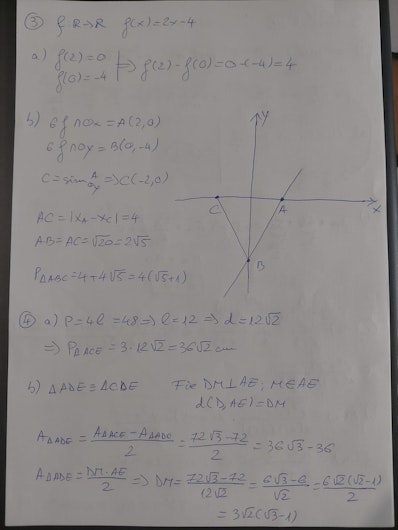 ③ f R→R f(x)=2x-4
a) f(2)=0
f(0)=-4 ⇒ f(2)-f(0)=0-(-4)=4
b) Gf∩Ox=A(2,0)
Gf∩Oy=B(0,-4)
C=sim A Oy ⇒ C(-2,0)
AC=|xA-xC|=4
AB=AC=√20=2√5
PΔABC=4+4√5=4(√5+1)
y
C A x
B
④ a) P=4l=48 ⇒ l=12 ⇒ d=12√2
⇒ PΔACE=3·12√2=36√2 cm
b) ΔADE≡ΔCDE Fie DM⊥AE; M∈AE
d(D,AE)=DM
AΔADE=(AΔACE-AΔADC)/2=(72√3-72)/2=36√3-36
AΔADE=(DM·AE)/2 ⇒ DM=(72√3-72)/(12√2)=(6√3-6)/√2=(6√2(√2-1))/2
=3√2(√3-1)